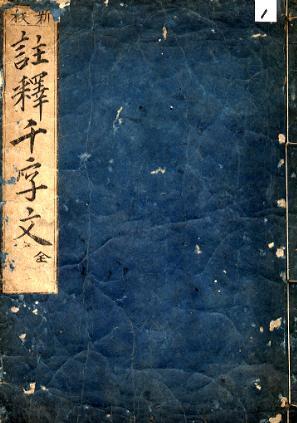 新板
註釋千字文
全
1